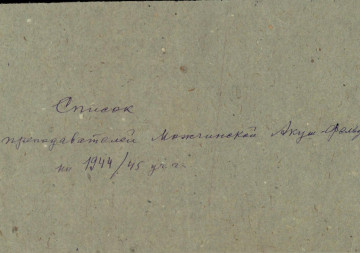 Список
преподавателей Можгинской Акуш Фельд
на 1944/45 уч.